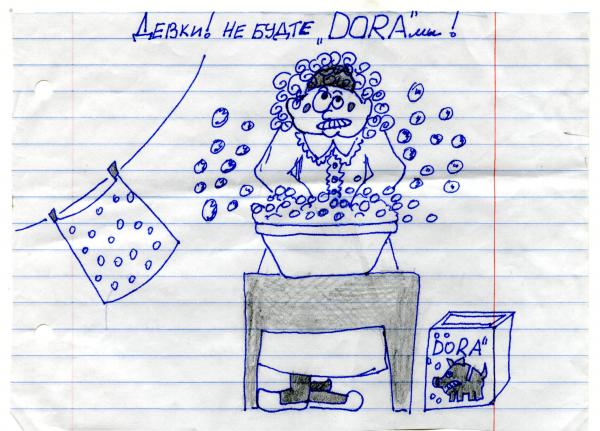 Девки! не будте „DORA"мы!
DORA"